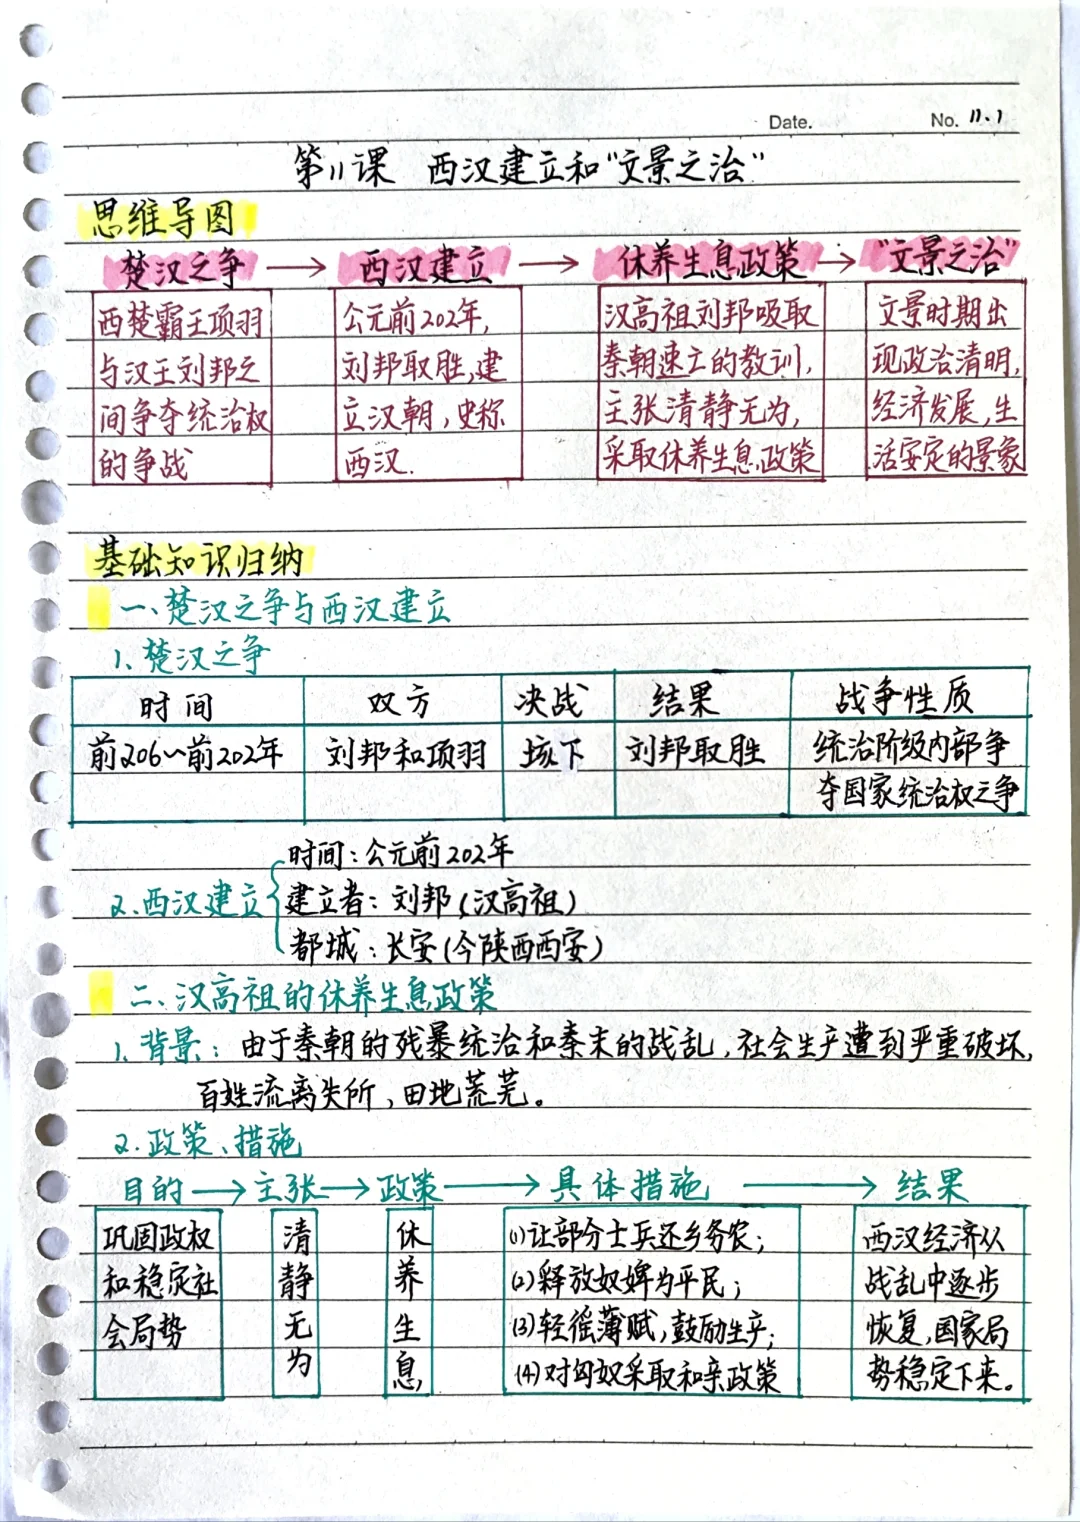 Date. No. 11.1
第11课 西汉建立和“文景之治”
思维导图
楚汉之争 → 西汉建立 → 休养生息政策 → “文景之治”
西楚霸王项羽 公元前202年, 汉高祖刘邦吸取 文景时期出
与汉王刘邦之 刘邦取胜,建 秦朝速亡的教训, 现政治清明,
间争夺统治权 立汉朝,史称 主张清静无为, 经济发展,生
的争战 西汉. 采取休养生息政策 活安定的景象
基础知识归纳
一、楚汉之争与西汉建立
1、楚汉之争
时间 双方 决战 结果 战争性质
前206~前202年 刘邦和项羽 垓下 刘邦取胜 统治阶级内部争
夺国家统治权之争
时间:公元前202年
2.西汉建立 建立者:刘邦(汉高祖)
都城:长安(今陕西西安)
二、汉高祖的休养生息政策
1、背景:由于秦朝的残暴统治和秦末的战乱,社会生产遭到严重破坏,
百姓流离失所,田地荒芜。
2.政策、措施
目的 → 主张 → 政策 → 具体措施 → 结果
巩固政权 清 休 (1)让部分士兵还乡务农; 西汉经济从
和稳定社 静 养 (2)释放奴婢为平民; 战乱中逐步
会局势 无 生 (3)轻徭薄赋,鼓励生产; 恢复,国家局
为 息 (4)对匈奴采取和亲政策 势稳定下来。